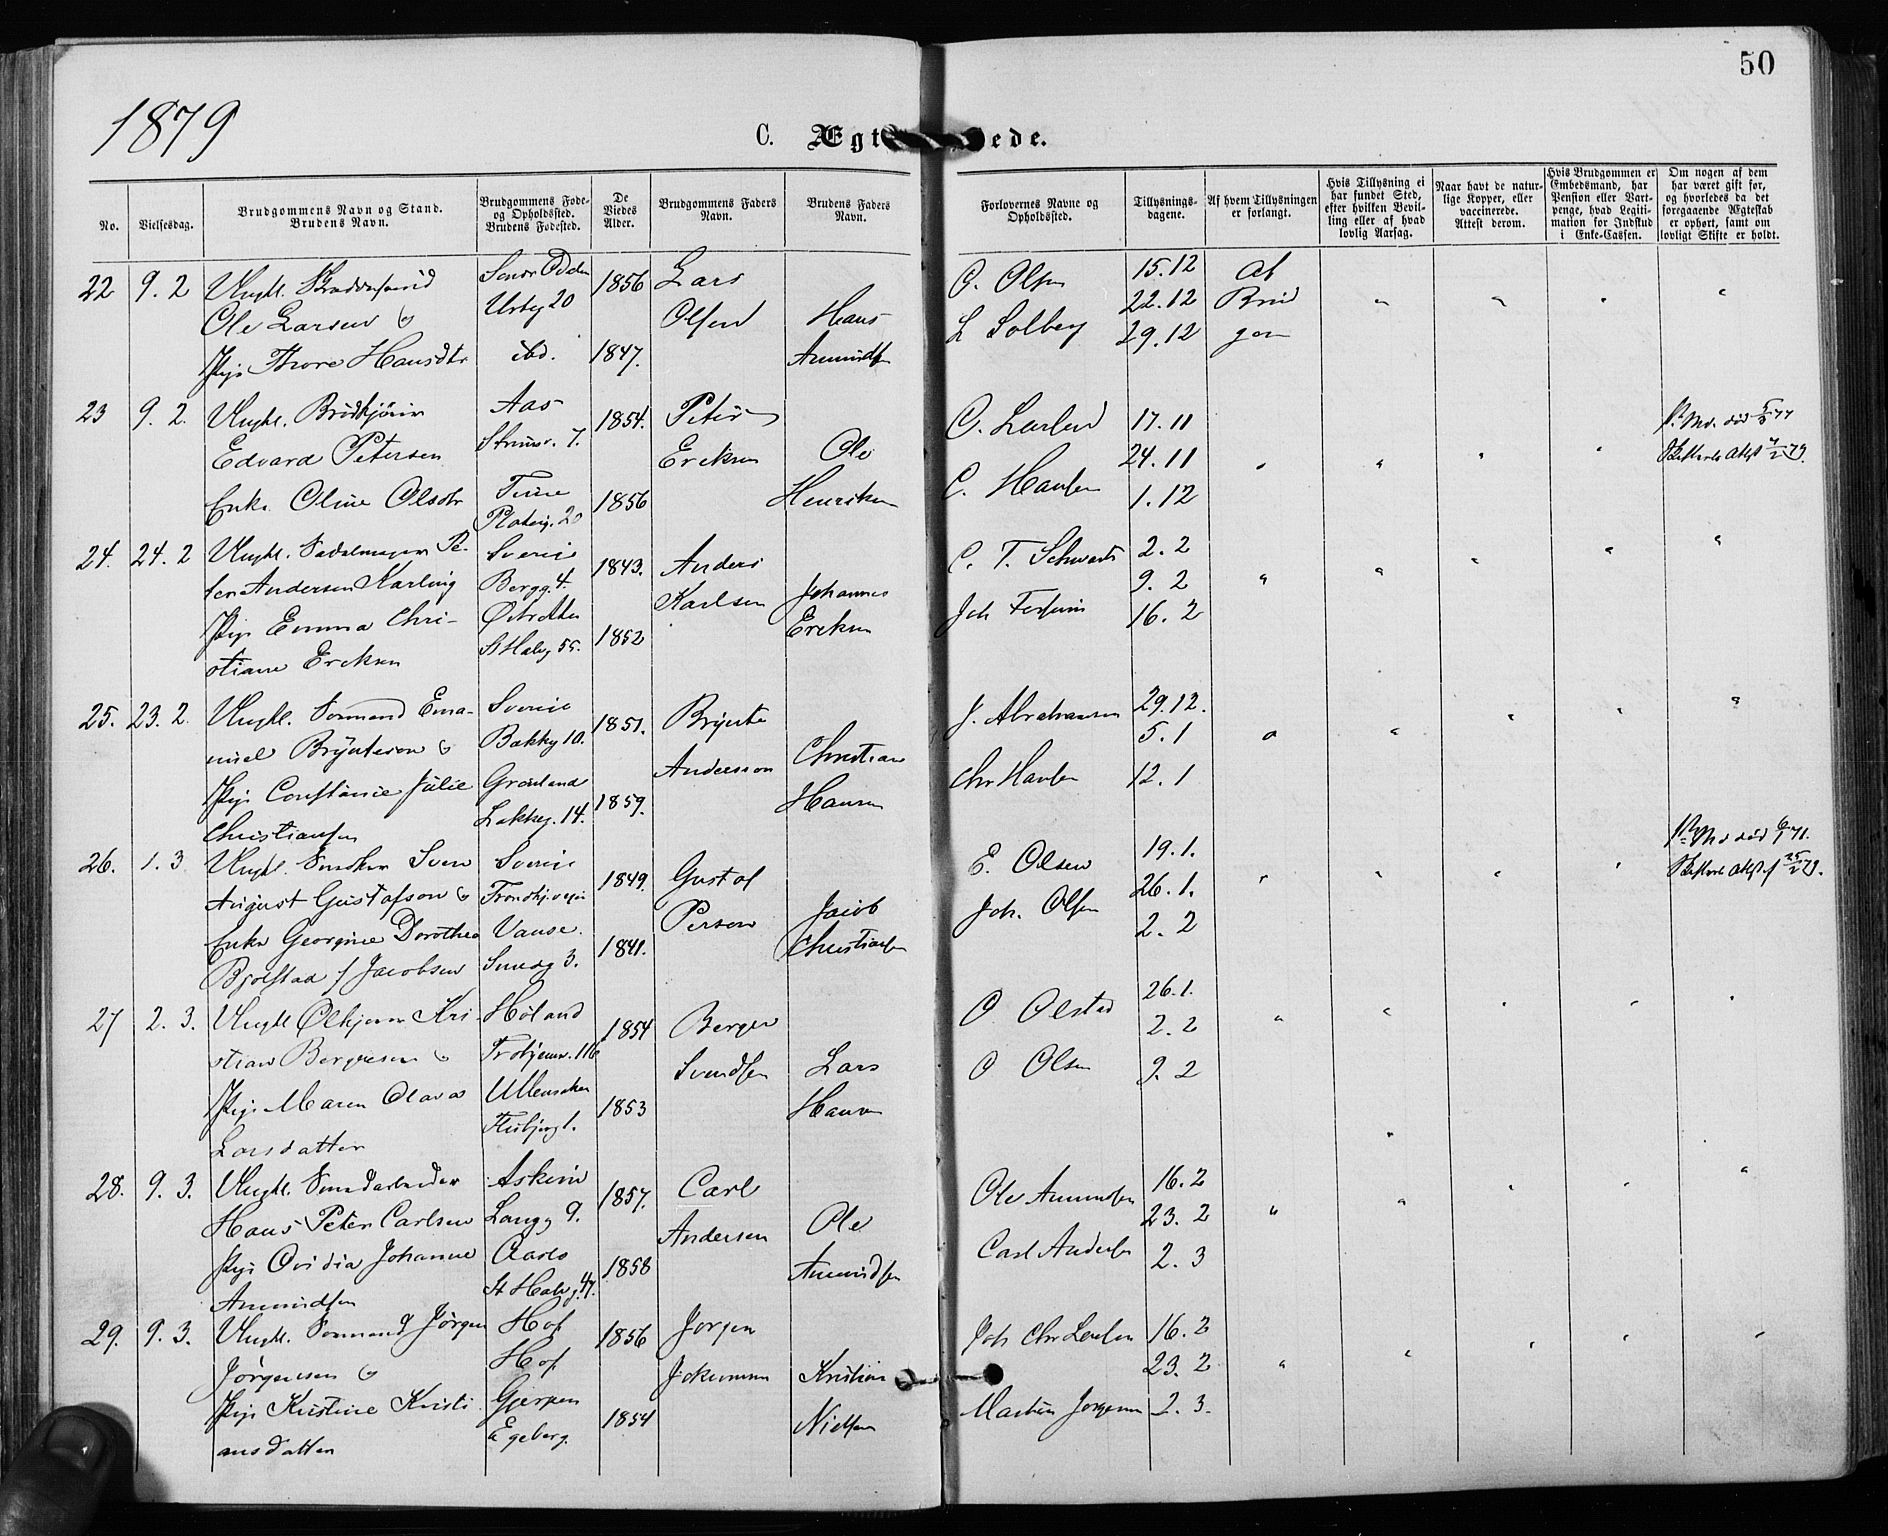 50
1879
C. Ægt ede.
No.
Vielsesdag.
Brudgommens Navn og Stand.
Brudens Navn.
Brudgommens Føde-
og Opholdssted.
Brudens Fødested.
De
Viedes
Alder.
Brudgommens Faders
Navn.
Brudens Faders
Navn.
Forlovernes Navne og
Opholdssted.
Tillysnings-
dagene.
Af hvem Tillysningen
er forlangt.
Hvis Tillysning ei
har fundet Sted,
efter hvilken Bevil-
ling eller af hvad
lovlig Aarsag.
Naar havt de natur-
lige Kopper, eller
vaccinerede.
Attest derom.
Hvis Brudgommen er
Embedsmand, har
Pension eller Vart-
penge, hvad Legiti-
mation for Indskud
i Enke-Cassen.
Om nogen af dem
har været gift før,
og hvorledes da det
foregaaende Ægteskab
er ophørt, samt om
lovligt Skifte er holdt.
22 9. 2 Ungkl.
Ole Larsen &
Pige Thore Hansdtr
Urteg 20
ibd.
1856
1847.
Lars
Olsen
Hans
Amundsen
O. Olsen
L Solberg
15.12
22.12
29.12
Af
Brud
gom
23 9. 2. Ungkl.
Edvard Petersen
Enke Oline Olsdtr
Aas
7.
20
1854.
1856
Peter
Eriksen
Ole
Henriksen
O. Larsen
C. Hansen
17.11
24.11
1.12
24. 24. 2 Ungkl. Sadelmager Pe-
ter Andersen Karling
Pige Emma Chri-
stiane Eriksen
Sverig
Bergg. 4.
St Halvg 55.
1843.
1852
Anders
Karlsen
Johannes
Eriksen
C. T. Schwartz
Joh
2. 2
9. 2
16. 2
25. 23. 2. Ungkl. Sømand Ema-
nuel Bryntesen &
Pige Constance Julie
Christiansen
Sverig
Bakkg 10.
Grønland
Lakkeg. 14.
1851.
1859.
Brynte
Andersson
Christian
Hansen
J. Abrahamsen
Chr Hansen
29.12.
5.1
12.1
26. 1. 3 Ungkl. Snedker Sven
August Gustafson &
Enke Georgine Dorothea
Bjølstad f Jacobsen
Sverig
Vanse
Smedg 3.
1849.
1841.
Gustaf
Person
Jacob
Christiansen
E. Olsen
Joh. Olsen
19.1.
26.1.
2. 2
27 2. 3. Ungkl Kri-
stian Bergersen &
Pige Maren Olava
Larsdatter
Høland
Ullensaker
1.
1854
1853
Berger
Svendsen
Lars
Hansen
O Olstad
O Olsen
26.1.
2. 2
9. 2
28. 9. 3. Ungkl.
Hans Peter Carlsen
Pige Ovidia Johanne
Amundsen
Askim
Langg 9.
St Halvg. 47.
1857.
1858
Carl
Andersen
Ole
Amundsen
Ole Amundsen
Carl Andersen
16. 2
23. 2
2. 3
29. 9. 3. Ungkl. Sømand Jørgen
Jørgensen &
Pige Kristine Kristi
ansdatter
Hof
Hof
Gjerpen
Egeberg.
1856
1854
Jørgen
Kristian
Nielsen
Joh Chr Larsen
Martin Jørgensen
16. 2
23. 2
2. 3.